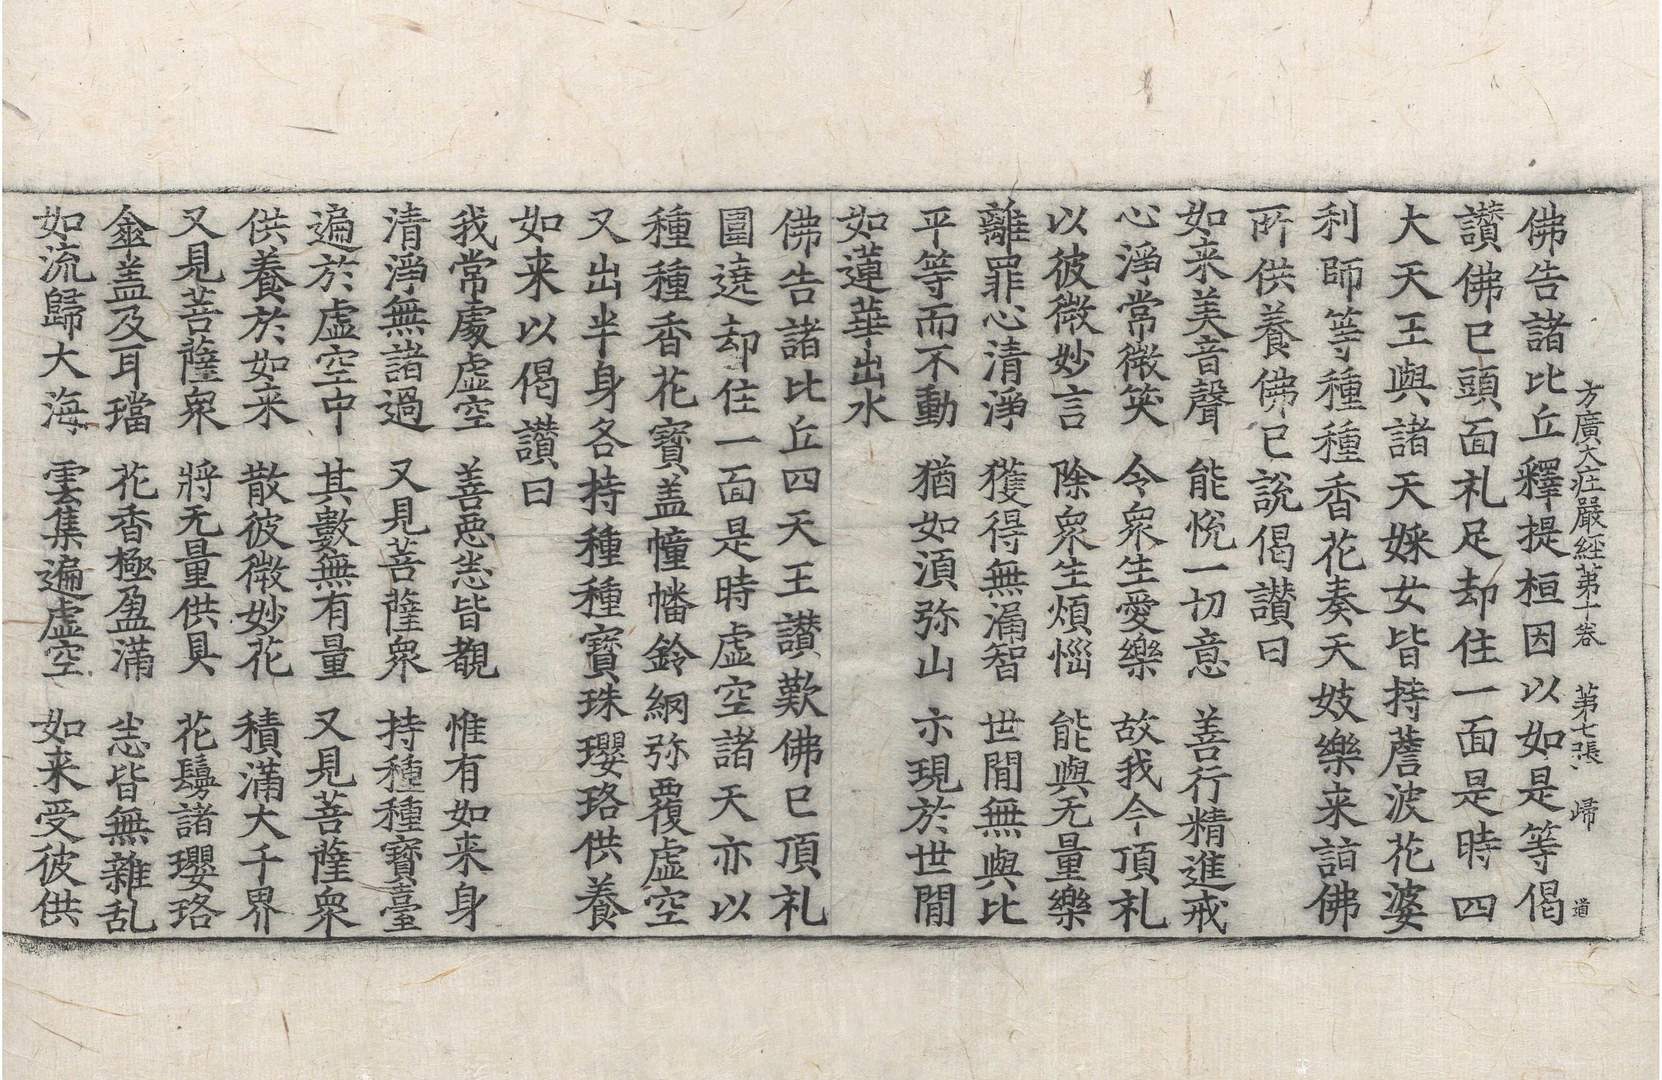 方廣大庄嚴經第十卷　第七張　歸　道
佛告諸比丘釋提桓因以如是等偈
讃佛已頭面礼足却住一面是時四
大天王與諸天婇女皆持薝波花婆
利師等種種香花奏天妓樂来詣佛
所供養佛已說偈讃曰
如来美音聲　能悅一切意　善行精進戒
心淨常微笑　令衆生愛樂　故我今頂礼
以彼微妙言　除衆生煩惱　能與无量樂
離罪心清淨　獲得無漏智　世間無與比
平等而不動　猶如湏弥山　亦現於世間
如蓮華出水
佛告諸比丘四天王讃歎佛已頂礼
圍遶却住一面是時虛空諸天亦以
種種香花寶盖幢幡鈴網弥覆虛空
又出半身各持種種寶珠瓔珞供養
如来以偈讃曰
我常處虛空　善惡悉皆覩　惟有如来身
清淨無諸過　又見菩薩衆　持種種寶臺
遍於虛空中　其數無有量　又見菩薩衆
供養於如来　散彼微妙花　積滿大千界
又見菩薩衆　將无量供具　花鬘諸瓔珞
傘盖及耳璫　花香極盈滿　悉皆無雜乱
如流歸大海　雲集遍虛空　如来受彼供